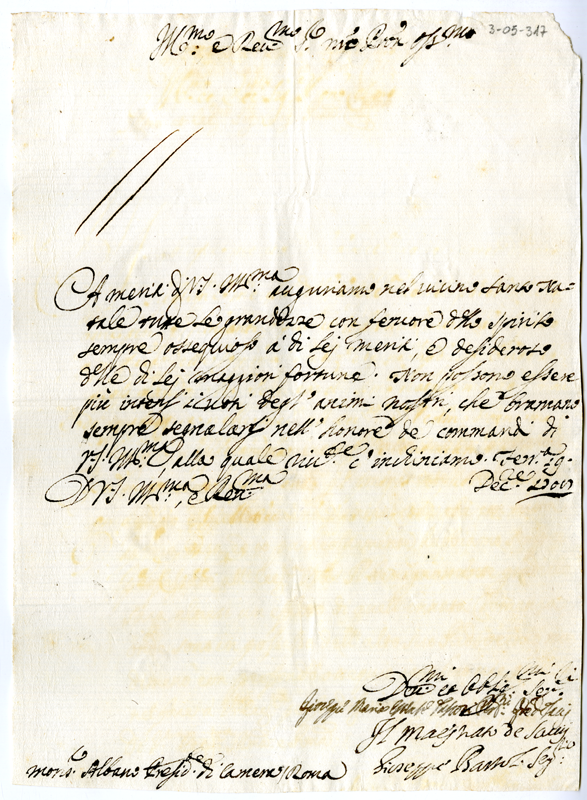 3-05-347
Ill.mo, e Reu.mo S.r, mio P.ron oss.mo
A merià di VS. Ill.ma auguriamo nel vicino Santo Na-
tale tutte le grandezze con feruore dello spirito
sempre ossequioso a' di lej meriti, e desideroso
delle di lej maggiori fortune. Non possono essere
più intensi i uoti degl' animi nostri, che bramano
sempre segnalarsi nell' honore de' commandi di
VS. Ill.ma, alla quale c' inchiniamo. 29.
Di VS. Ill.ma, e Reu.ma Dec.e
Deu.mi et Oblig.mi Se.ri
Gioseppe Maria
Il Maestrato de Sauij
Giuseppe Seg.rio
Mons.r Albano Presid.te di Camera Roma